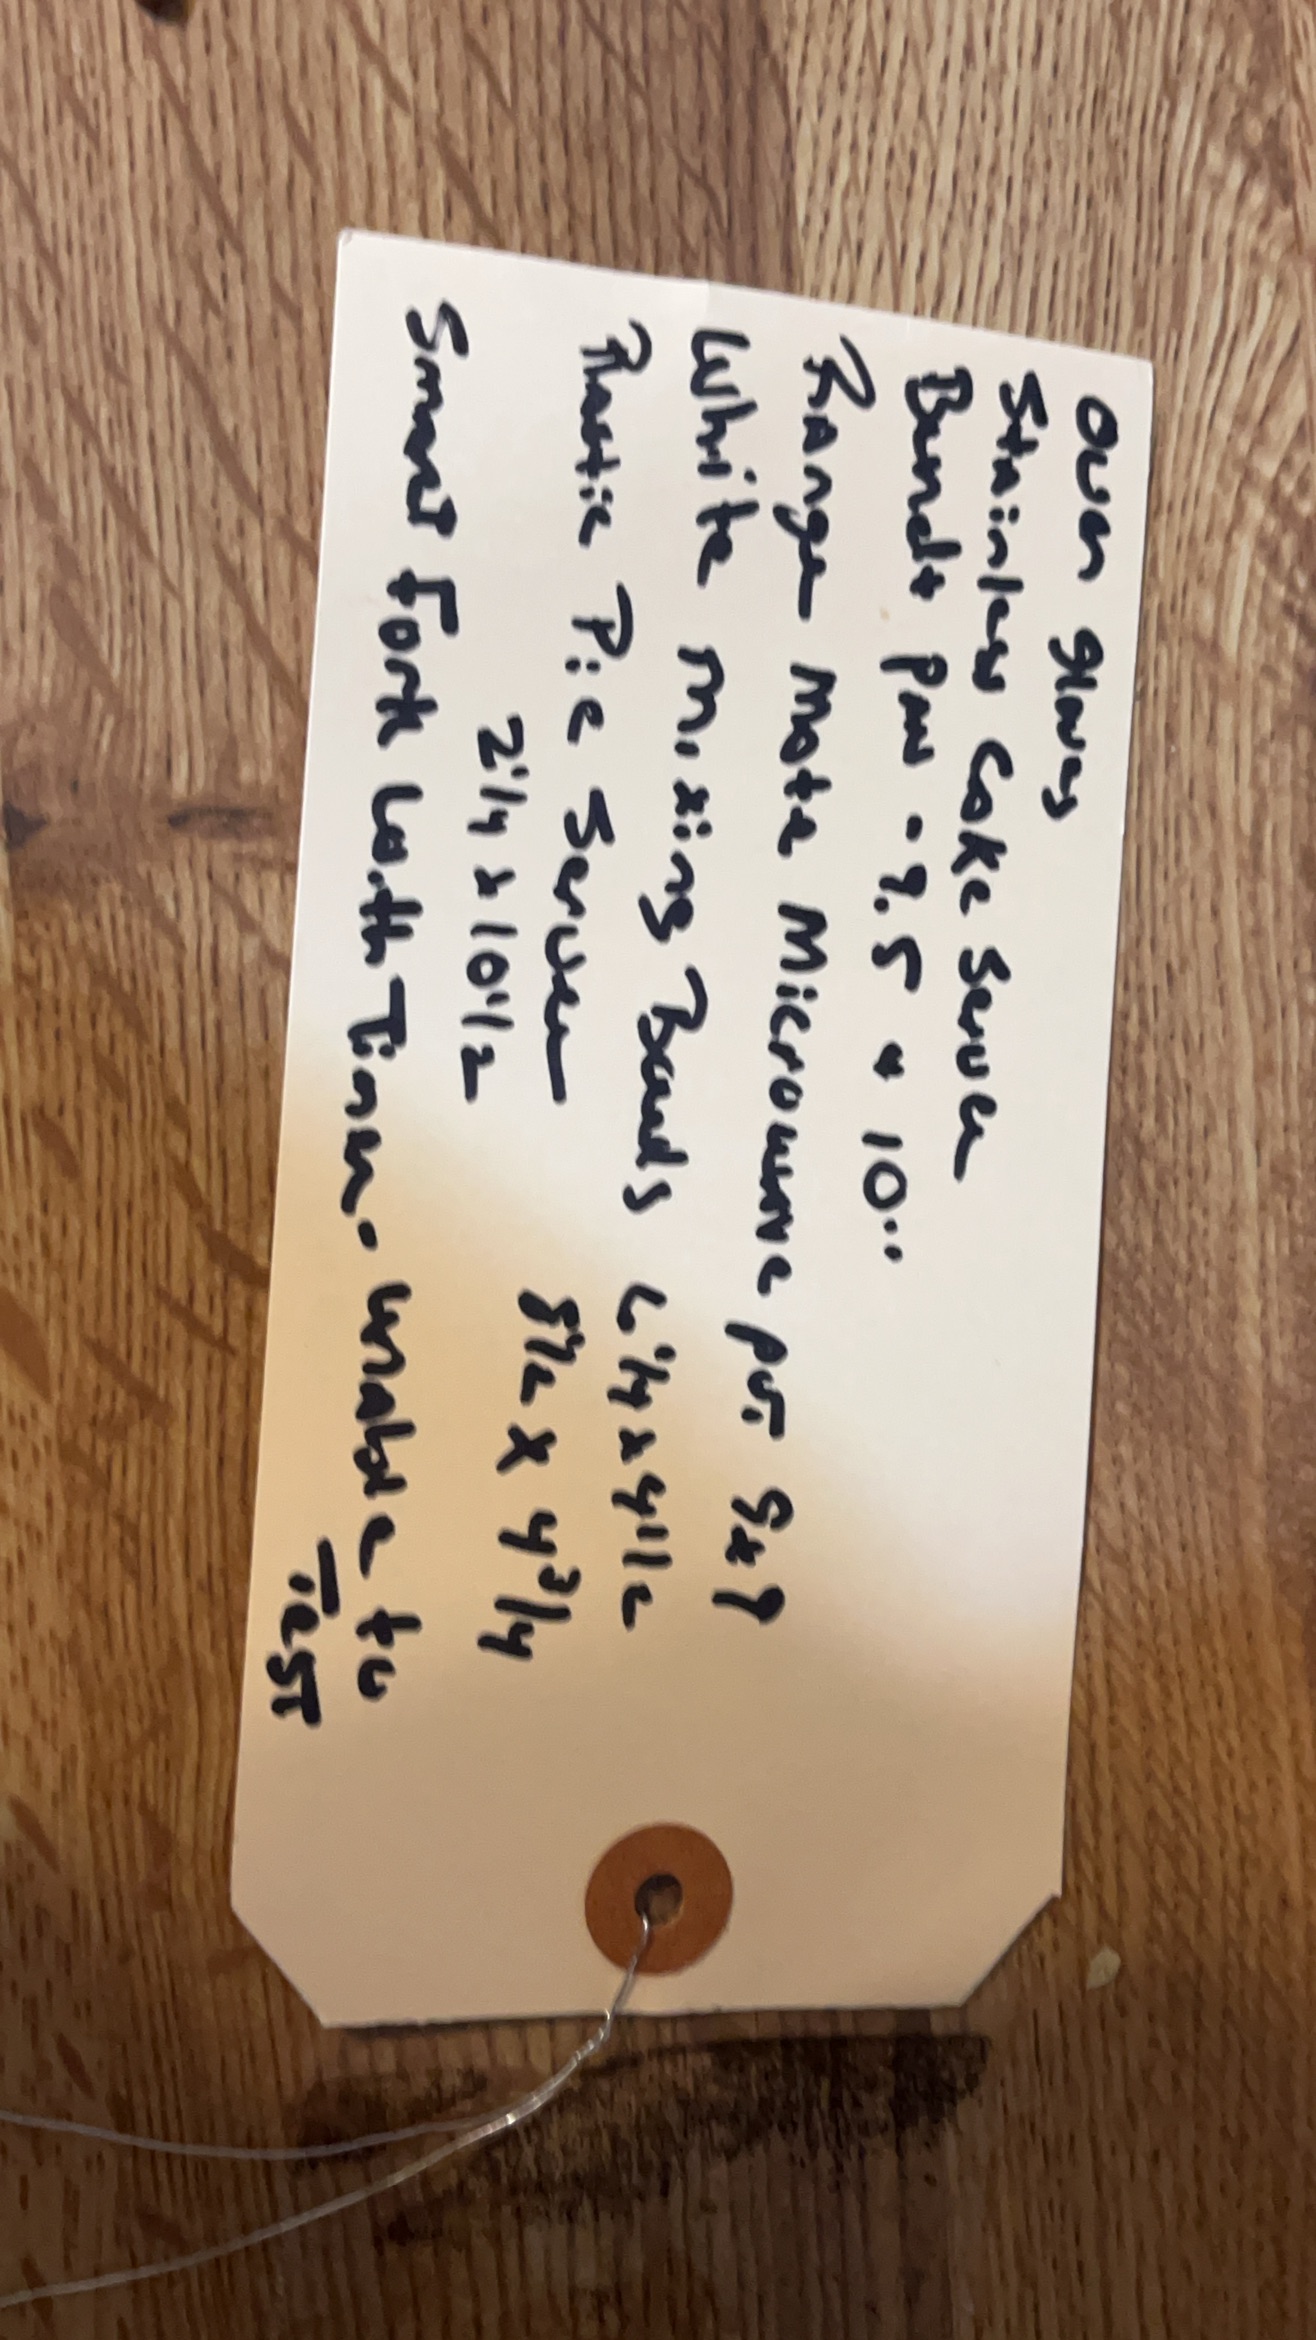 Oven gloves
Stainless Cake Server
Bundt pan - 9.5 + 10"
Range mate Microwave pot 9x9
White mixing Bowls 6 1/4 x 4 1/2
8 1/2 x 4 3/4
Plastic Pie Server
2 1/4 x 10 1/2
Smart Fork with Timer. unable to
Test